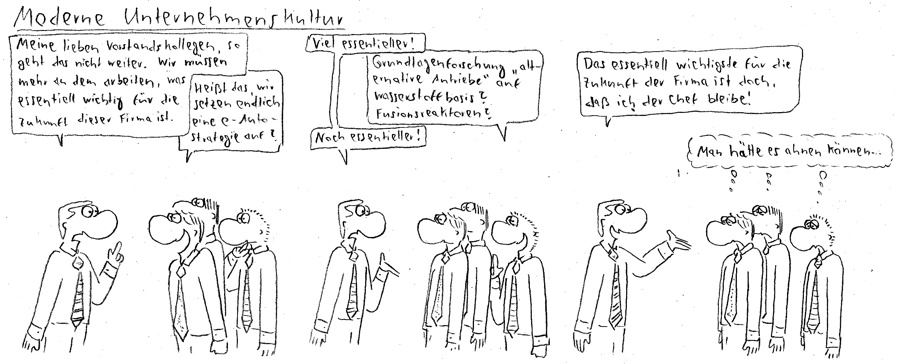 Moderne Unternehmenskultur
Meine lieben Vorstandskollegen, so
geht das nicht weiter. Wir müssen
mehr an dem arbeiten, was
essentiell wichtig für die
Zukunft dieser Firma ist.
Heißt das, wir
setzen endlich
eine e-Auto-
strategie auf?
Viel essentieller!
Grundlagenforschung „alt-
ernative Antriebe" auf
Wasserstoffbasis?
Fusionsreaktoren?
Noch essentieller!
Das essentiell wichtigste für die
Zukunft der Firma ist doch,
daß ich der Chef bleibe!
Man hätte es ahnen können...